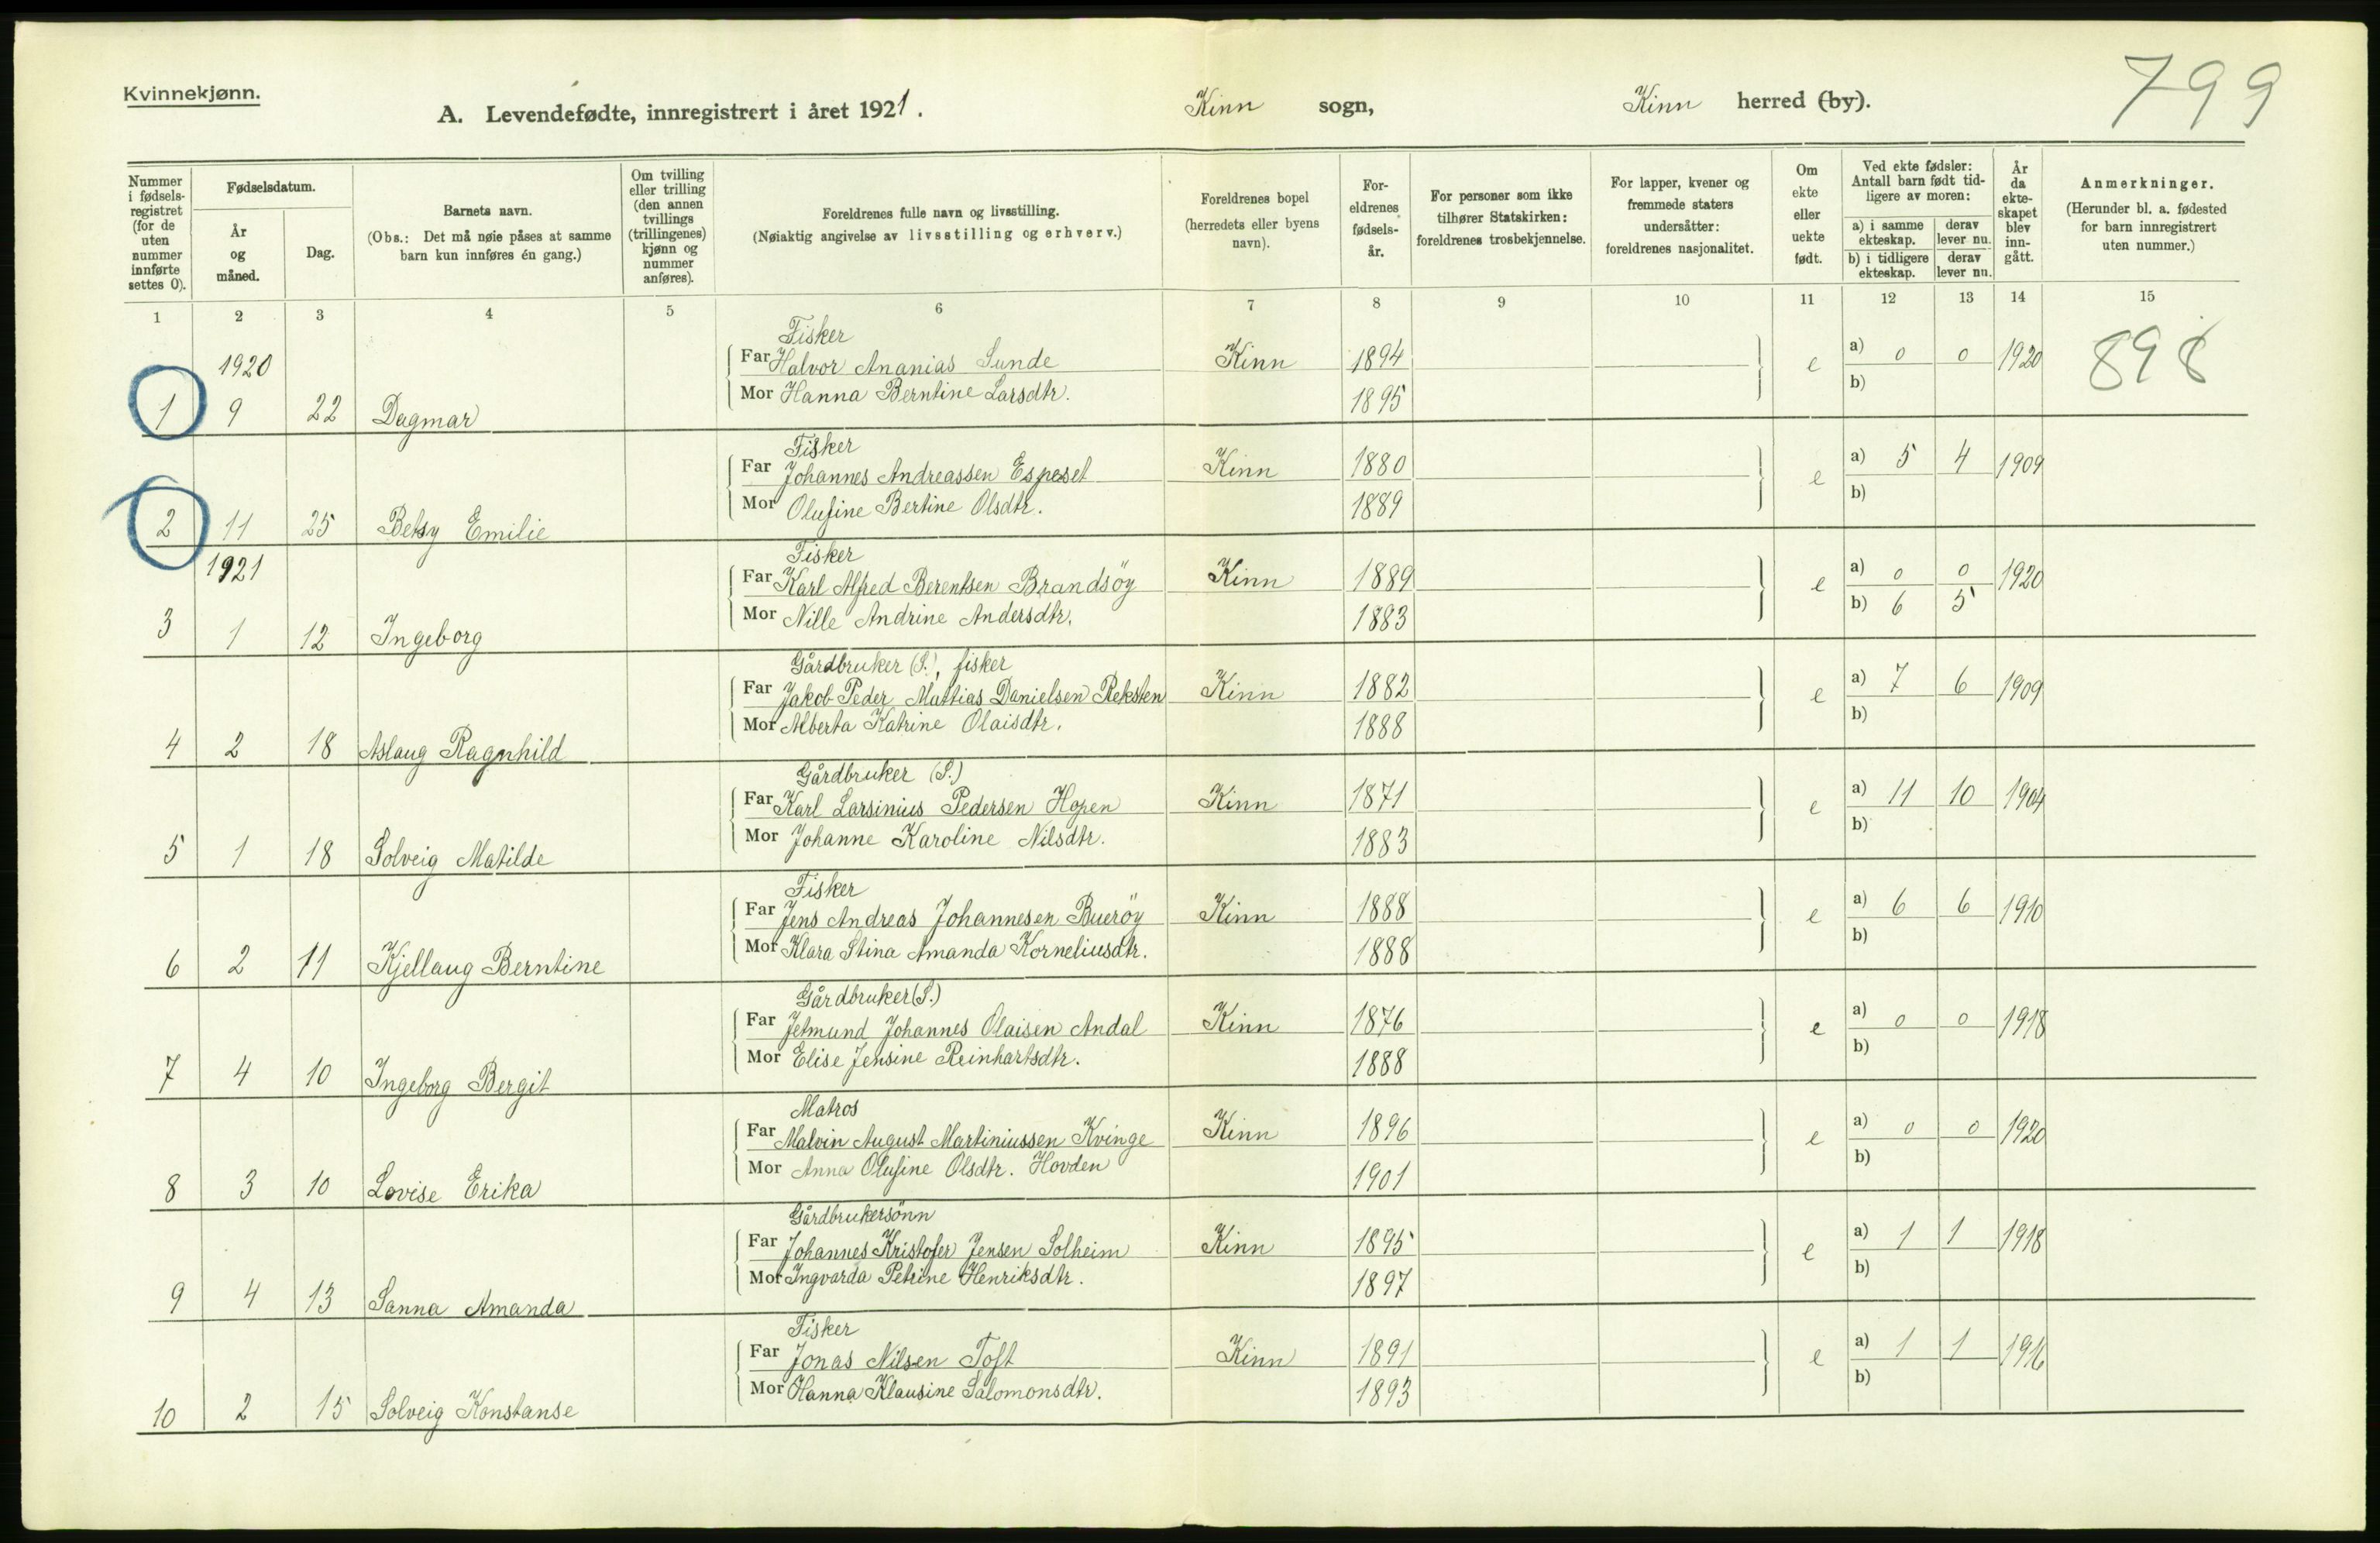 Kvinnekjønn.
799
A. Levendefødte, innregistrert i året 1921. Kinn sogn, Kinn herred (by).
Nummer i fødsels-registret (for de uten nummer innførte settes 0).
Fødselsdatum.
År og måned.
Dag.
Barnets navn.
(Obs.: Det må nøie påses at samme barn kun innføres én gang.)
Om tvilling eller trilling (den annen tvillings (trillingenes) kjønn og nummer anføres).
Foreldrenes fulle navn og livsstilling.
(Nøiaktig angivelse av livsstilling og erhverv.)
Foreldrenes bopel (herredets eller byens navn).
For-eldrenes fødsels-år.
For personer som ikke tilhører Statskirken: foreldrenes trosbekjennelse.
For lapper, kvener og fremmede staters undersåtter: foreldrenes nasjonalitet.
Om ekte eller uekte født.
Ved ekte fødsler: Antall barn født tid-ligere av moren:
a) i samme ekteskap. derav lever nu.
b) i tidligere ekteskap. derav lever nu.
År da ekte-skapet blev inn-gått.
Anmerkninger.
(Herunder bl. a. fødested for barn innregistrert uten nummer.)
1 2 3 4 5 6 7 8 9 10 11 12 13 14 15
Fisker
1920 Far Halvor Ananias Sunde Kinn 1894 e a) 0 0 1920 898
1 9 22 Dagmar Mor Hanna Berntine Larsdtr. 1895 b)
Fisker
Far Johannes Andreassen Espeset Kinn 1880 e a) 5 4 1909
2 11 25 Betsy Emilie Mor Olufine Bertine Olsdtr. 1889 b)
Fisker
1921 Far Karl Alfred Berentsen Brandsöy Kinn 1889 e a) 0 0 1920
3 1 12 Ingeborg Mor Nille Andrine Andersdtr. 1883 b) 6 5
Gårdbruker (S.), fisker
Far Jakob Peder Mattias Danielsen Reksten Kinn 1882 e a) 7 6 1909
4 2 18 Aslaug Ragnhild Mor Alberta Katrine Olaisdtr. 1888 b)
Gårdbruker (S.)
Far Karl Larsinius Pedersen Hopen Kinn 1871 e a) 11 10 1904
5 1 18 Solveig Matilde Mor Johanne Karoline Nilsdtr. 1883 b)
Fisker
Far Jens Andreas Johannesen Bueröy Kinn 1888 e a) 6 6 1910
6 2 11 Kjellaug Berntine Mor Klara Stina Amanda Korneliusdtr. 1888 b)
Gårdbruker (S.)
Far Jetmund Johannes Olaisen Andal Kinn 1876 e a) 0 0 1918
7 4 10 Ingeborg Bergit Mor Elise Jensine Reinhartsdtr. 1888 b)
Matros
Far Malvin August Martiniussen Kvinge Kinn 1896 e a) 0 0 1920
8 3 10 Lovise Erika Mor Anna Olufine Olsdtr. Hovden 1901 b)
Gårdbrukersönn
Far Johannes Kristofer Jensen Solheim Kinn 1895 e a) 1 1 1918
9 4 13 Sanna Amanda Mor Ingvarda Petrine Henriksdtr. 1897 b)
Fisker
Far Jonas Nilsen Toft Kinn 1891 e a) 1 1 1916
10 2 15 Solveig Konstanse Mor Hanna Klausine Salomonsdtr. 1893 b)